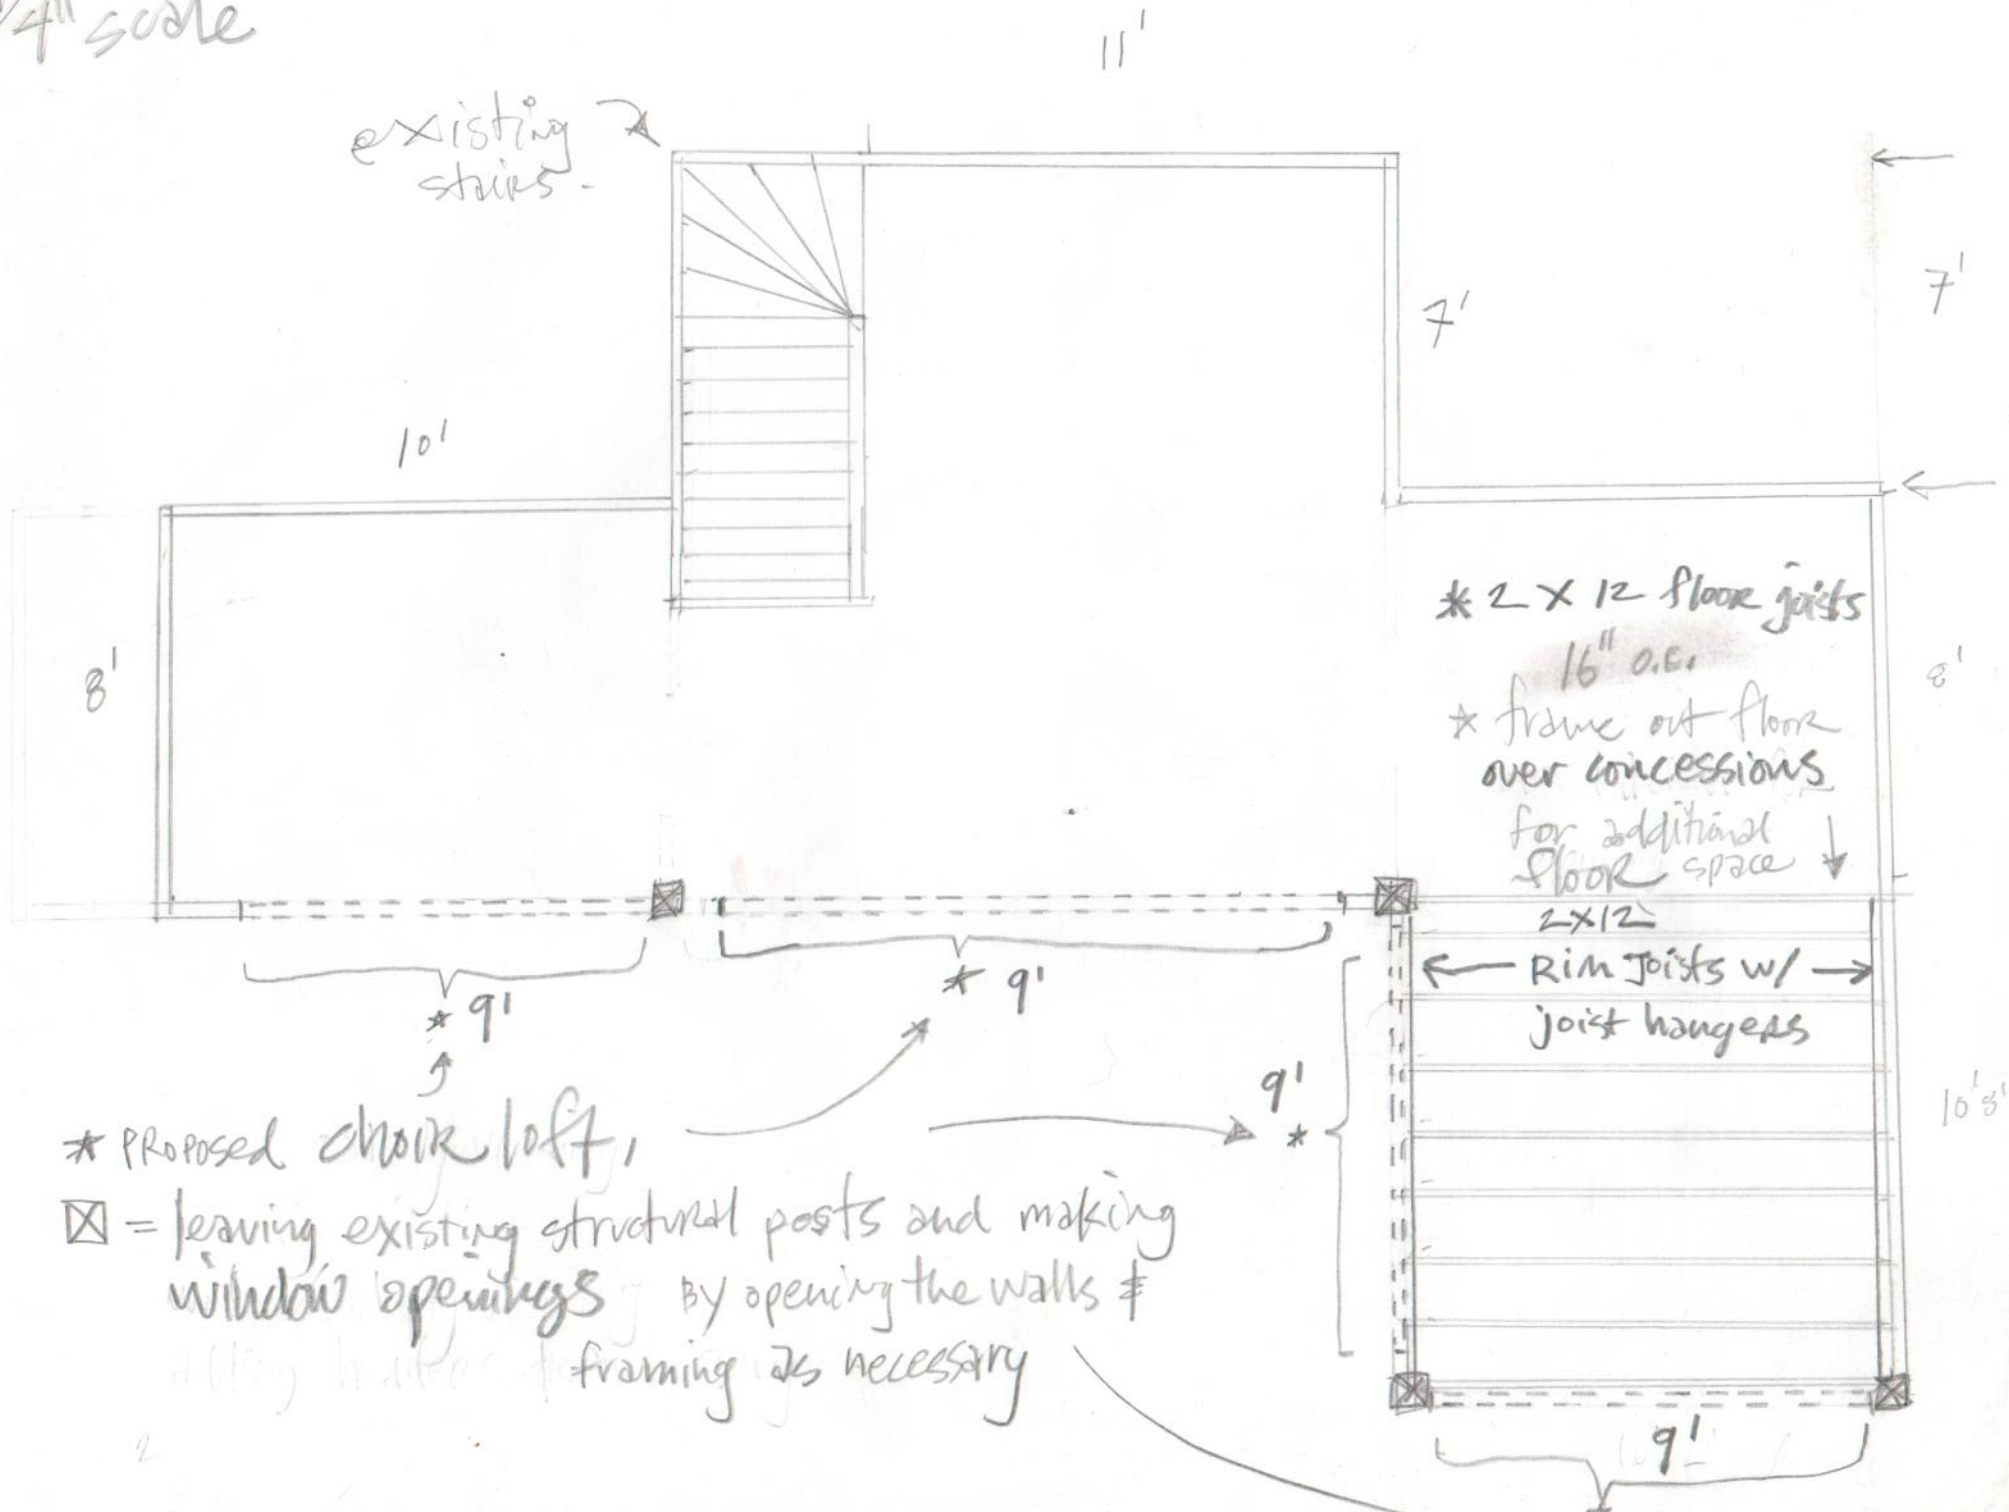 1/4" scale
11'
existing
stairs.
7'
7'
10'
* 2 X 12 floor joists
16" O.C.
8'
8'
* frame out floor
over concessions
for additional
floor space
2X12
Rim Joists w/
joist hangers
* 9'
* 9'
9'
*
10'8'
* PROPOSED choir loft,
= leaving existing structural posts and making
window openings By opening the walls &
framing as necessary
9'